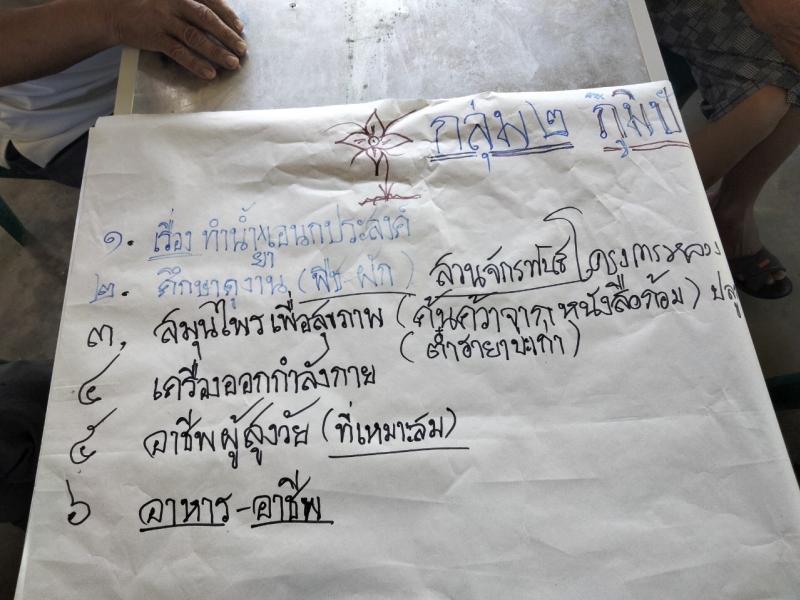 กลุ่ม ๒ ภูมิป
๑. เรื่อง ทำน้ำยาเอนกประสงค์
๒. ศึกษาดูงาน (พืช-ผัก) สานจักรพันธ์ โครงการหลวง
๓. สมุนไพรเพื่อสุขภาพ (ค้นคว้าจากหนังสือก้อม)
(ตำรายาเก่า)
๔ เครื่องออกกำลังกาย
๕ อาชีพผู้สูงวัย (ที่เหมาะสม)
๖ อาหาร-อาชีพ